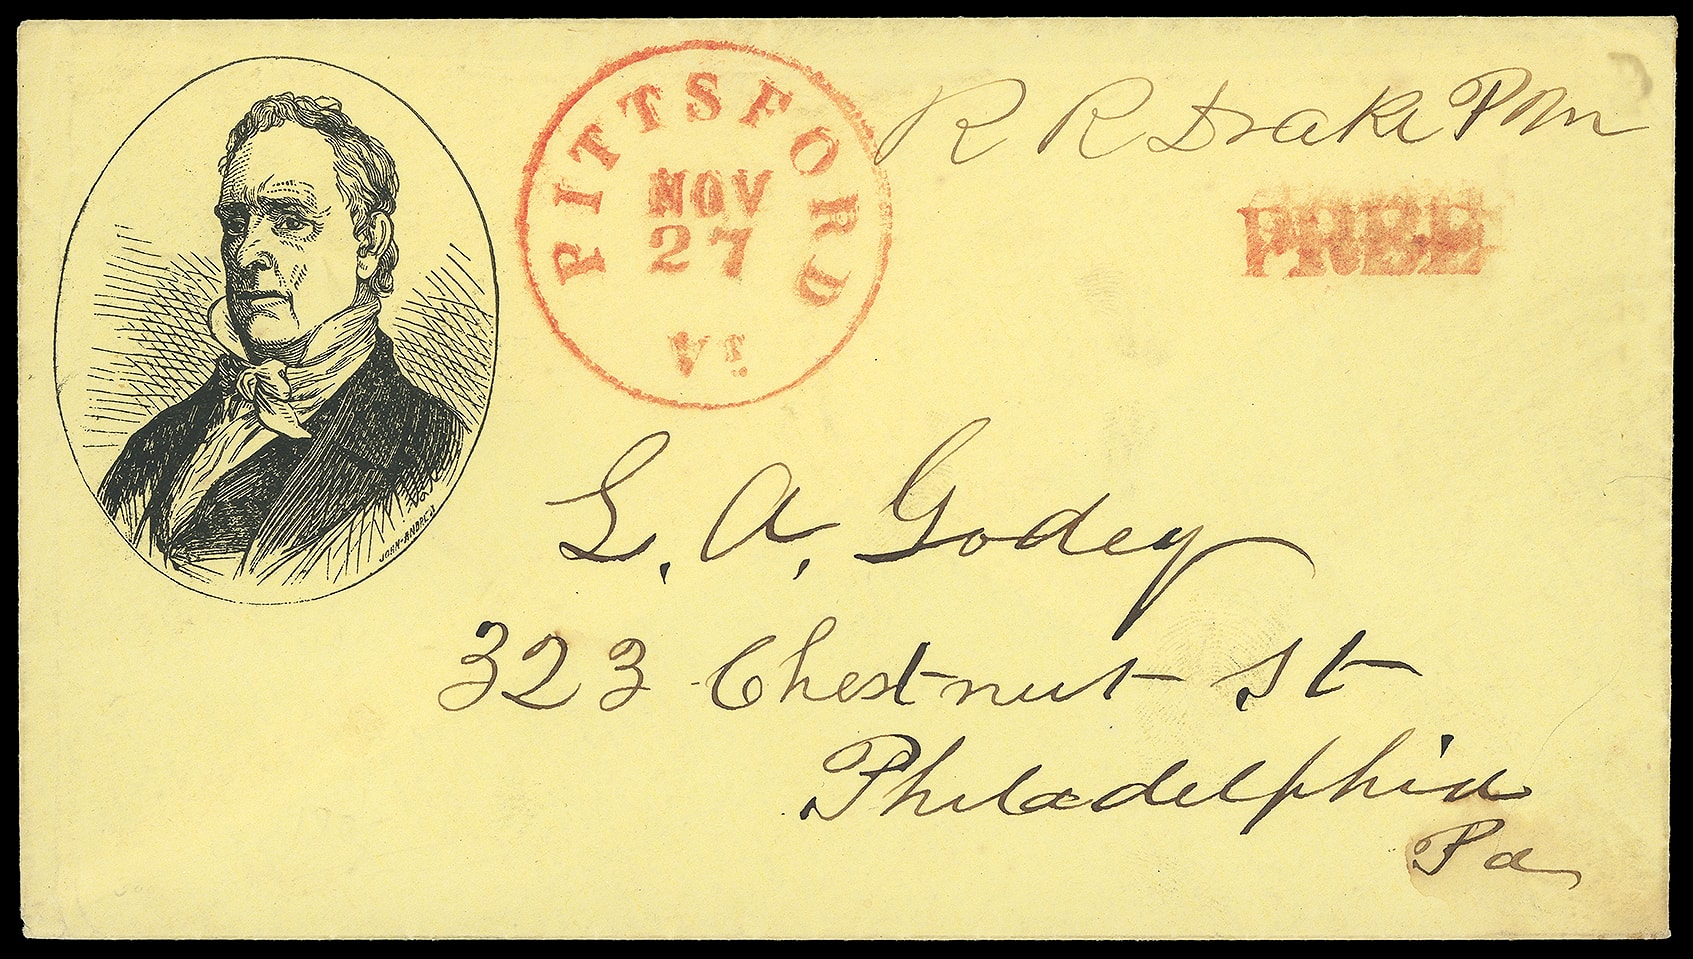 R R Drake PM
PITTSFORD
NOV
27
Vt
FREE
JOHN-ANDREW
L. A. Godey
323 Chestnut St
Philadelphia
Pa